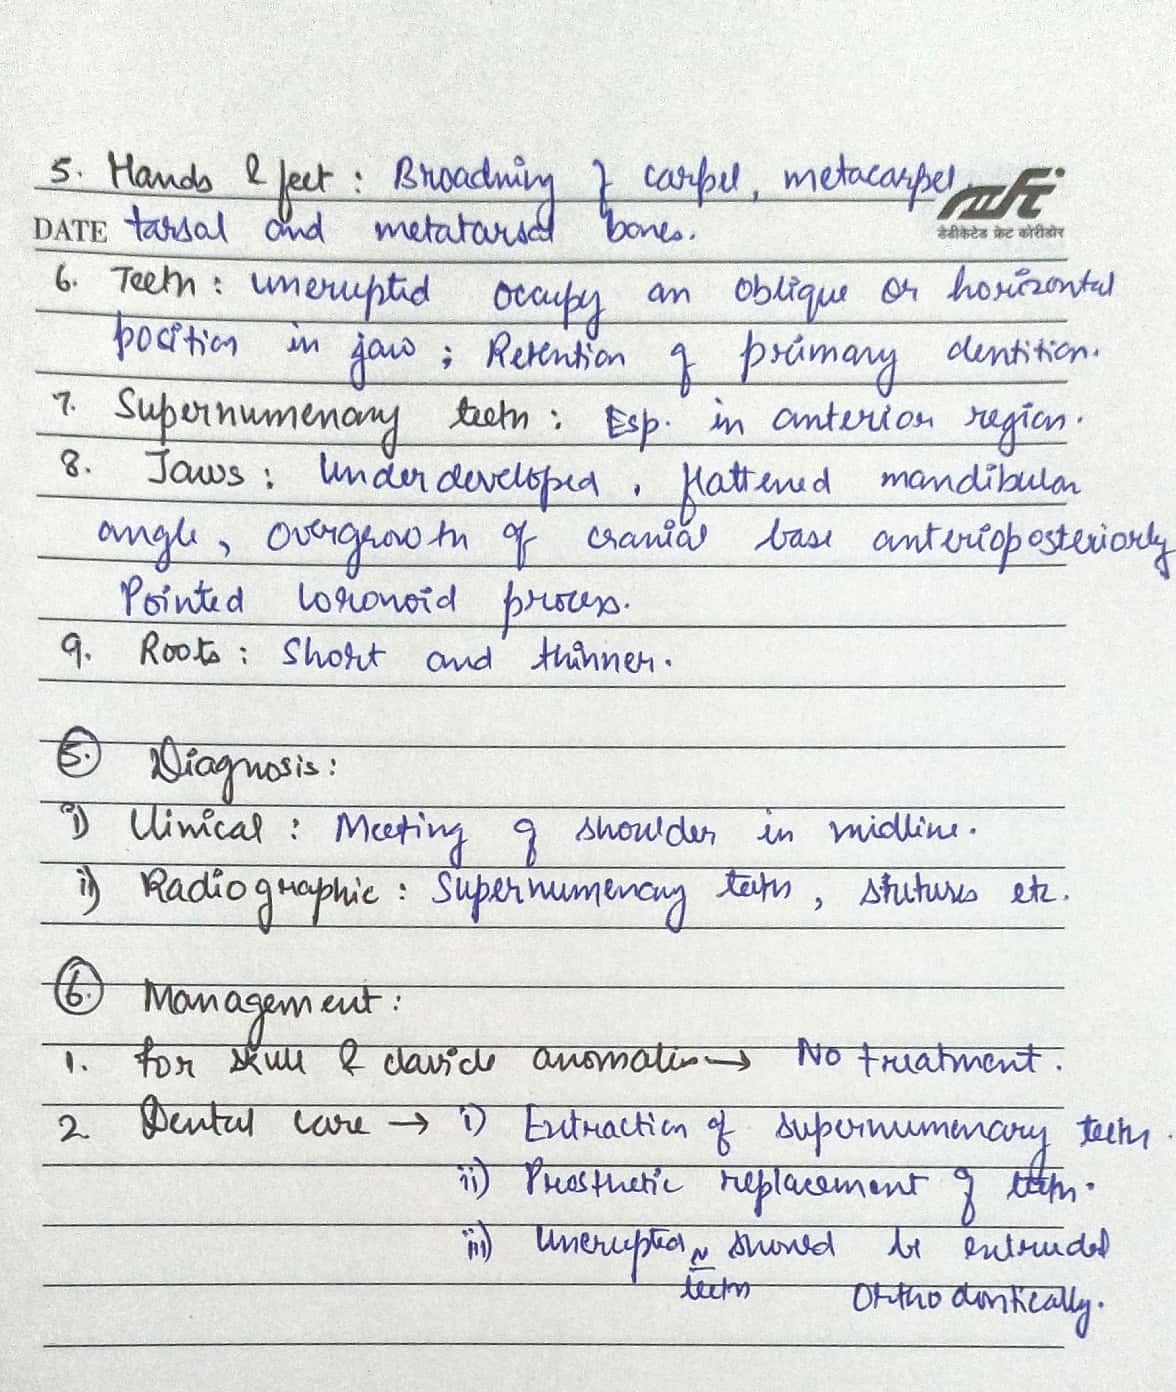 5. Hands & feet : Broadning of carpel, metacarpel
DATE tarsal and metatarsal bones.
डेडीकेटेड फ्रेट कोरीडोर
6. Teeth : unerupted occupy an oblique or horizontal
position in jaw ; Retention of primary dentition.
7. Supernumenary teeth : Esp. in anterior region.
8. Jaws : Underdeveloped, flattened mandibular
angle, overgrowth of cranial base anterioposteriorly
Pointed coronoid process.
9. Roots : Short and thinner.
5. Diagnosis :
i) Clinical : Meeting of shoulder in midline.
ii) Radiographic : Supernumenary teeth, stutures etc.
6. Management :
1. for skull & clavicle anomalies → No treatment.
2 Dental care → i) Extraction of supernumenary teeth.
ii) Prosthetic replacement of teeth.
iii) Unerupted teeth should be extruded
Orthodontically.